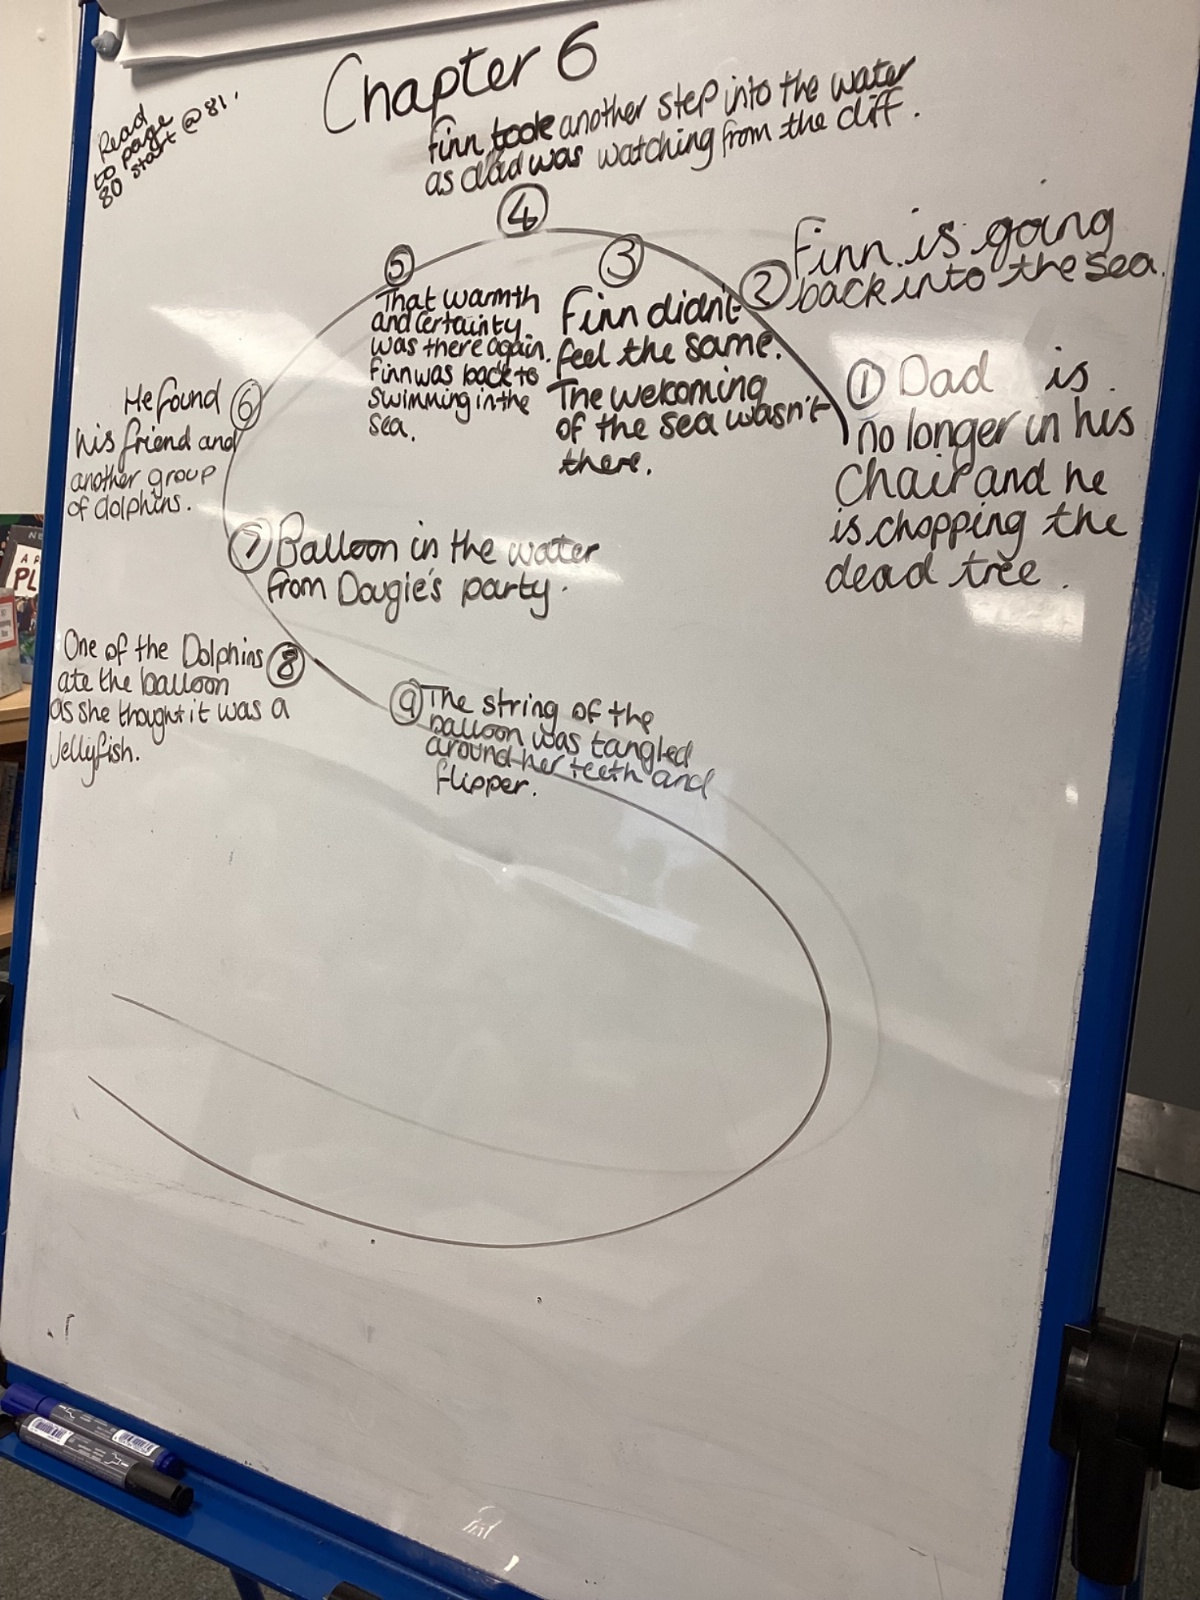 Chapter 6
Read
to page
80 start @ 81.
Finn took another step into the water
as dad was watching from the cliff.
④
⑤
That warmth
and certainty
was there again.
Finn was back to
swimming in the
sea.
③
Finn didn't
feel the same.
The welcoming
of the sea wasn't
there.
② Finn is going
back into the sea.
① Dad is
no longer in his
Chair and he
is chopping the
dead tree.
He found ⑥
his friend and
another group
of dolphins.
⑦ Balloon in the water
from Dougie's party.
One of the Dolphins ⑧
ate the balloon
as she thought it was a
Jellyfish.
⑨ The string of the
balloon was tangled
around her teeth and
flipper.